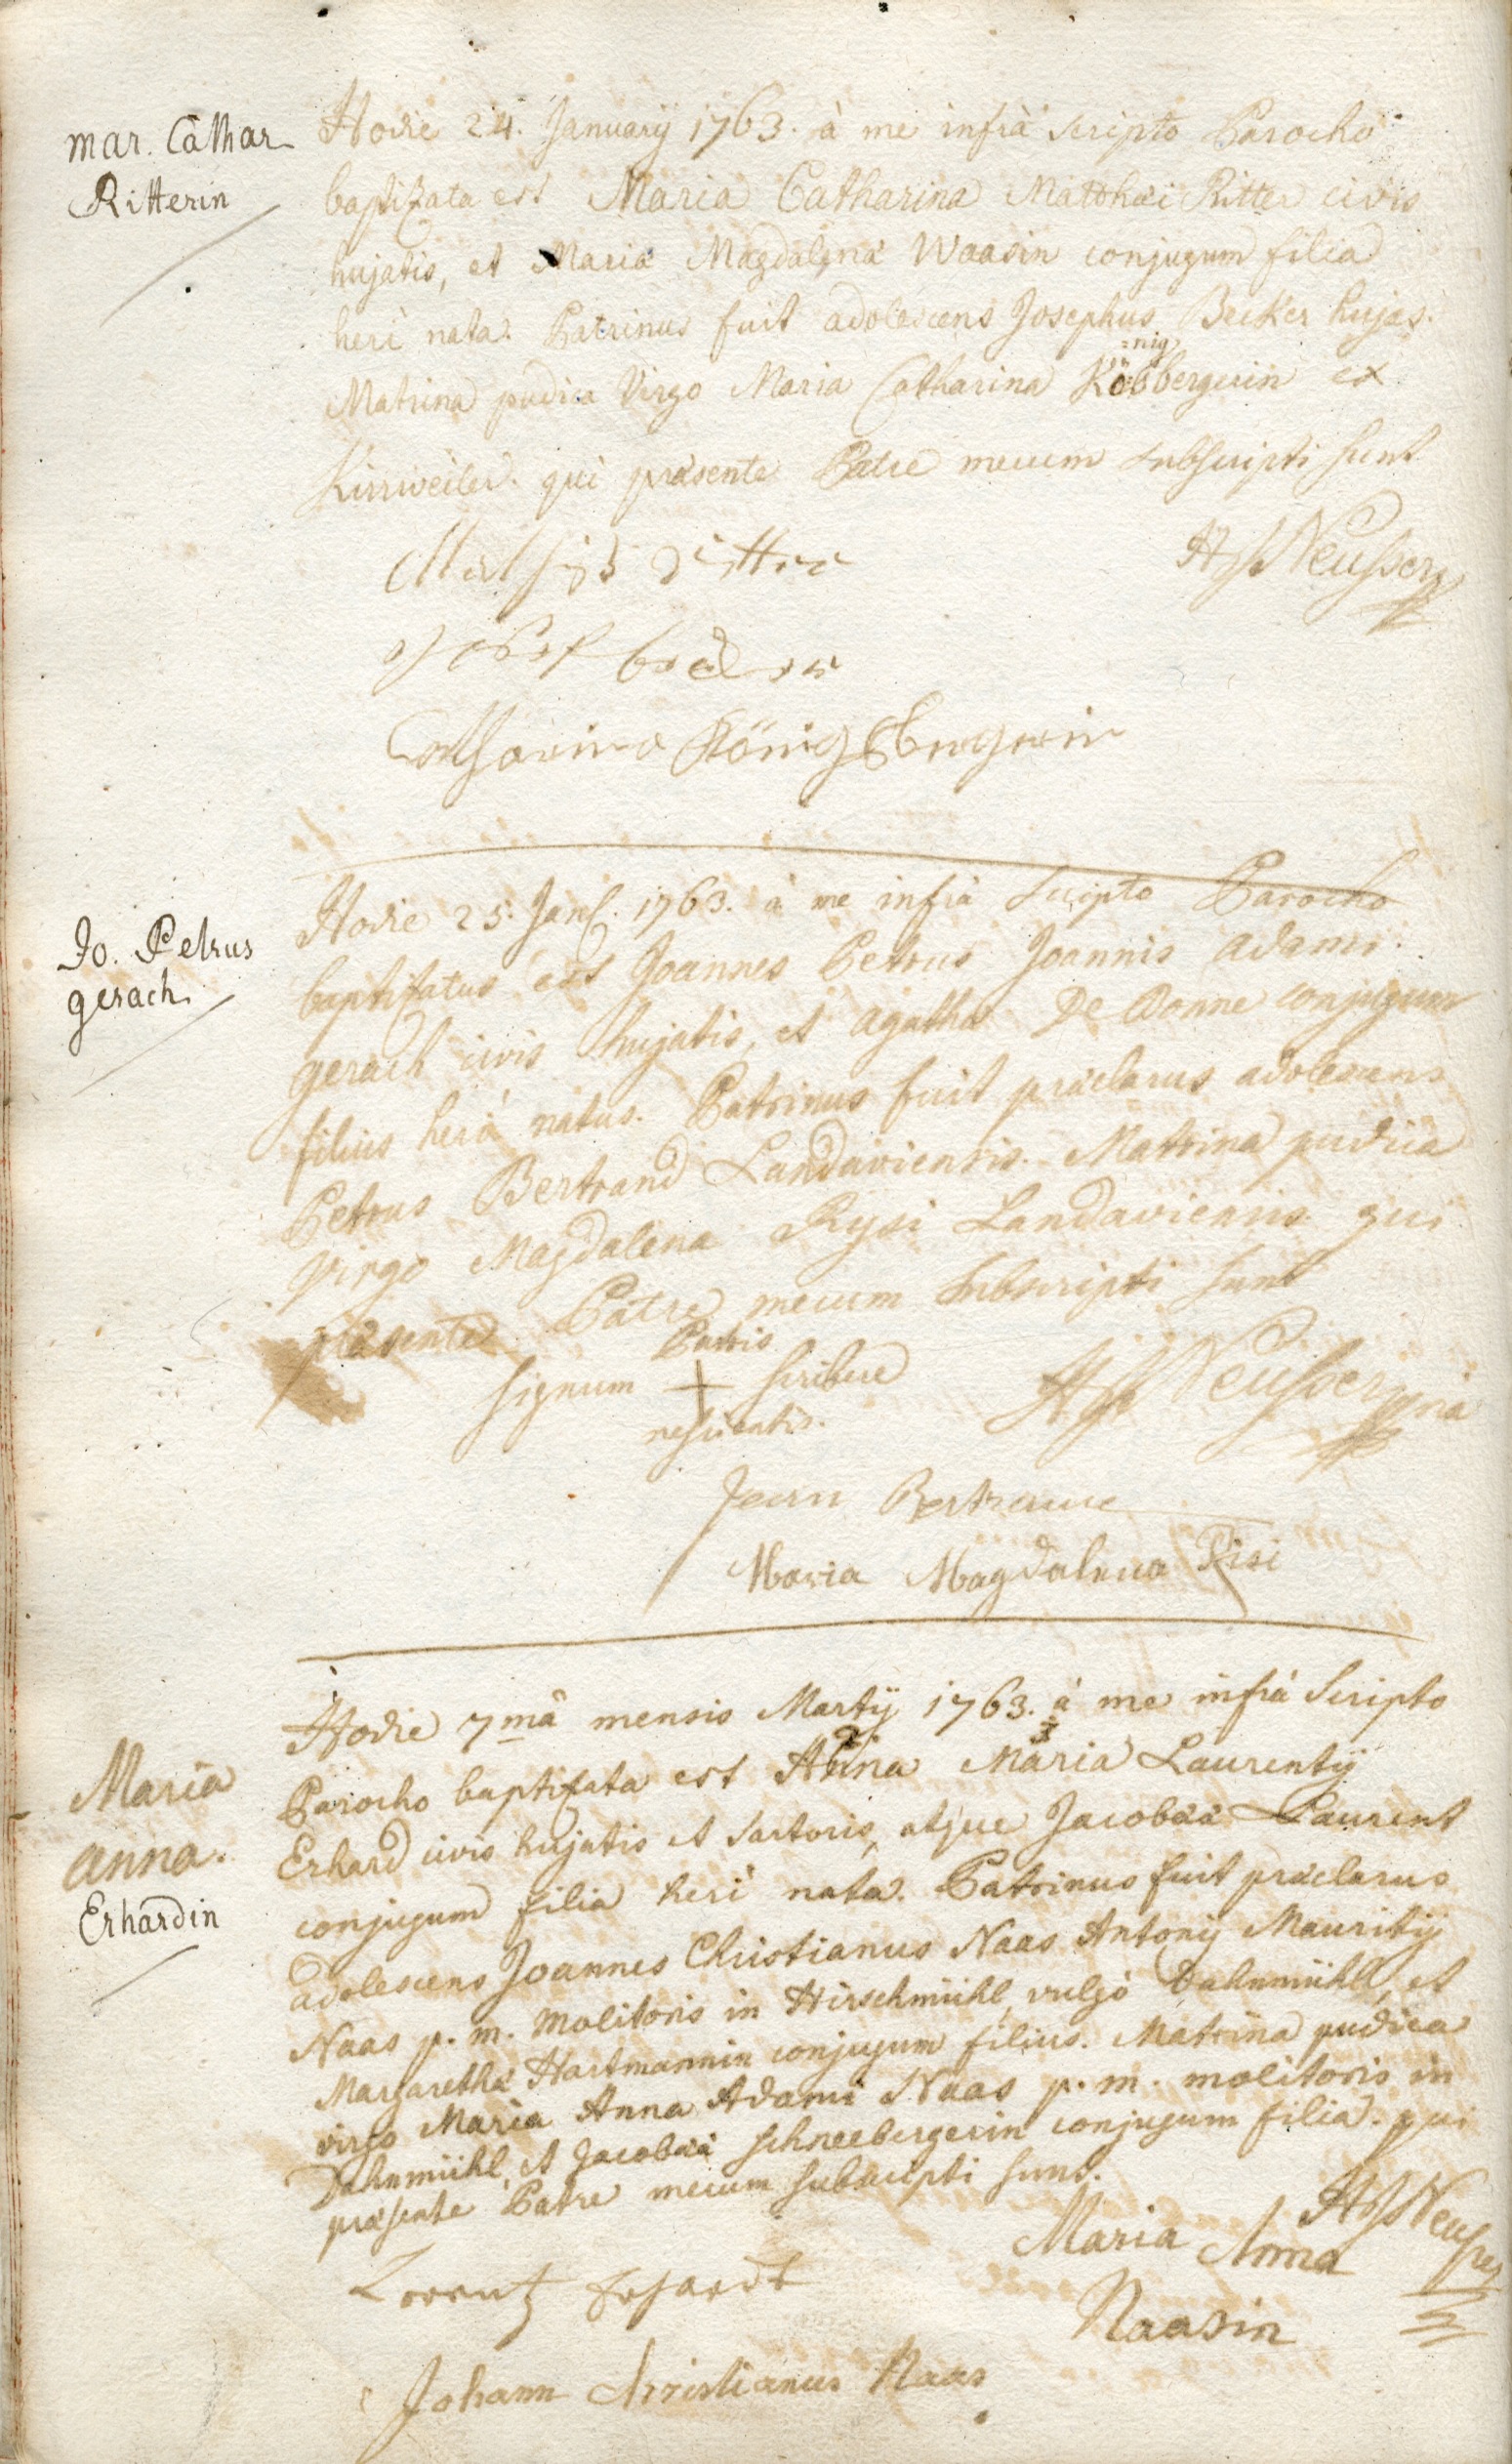 mar. Cathar
Ritterin
Hodie 24. January 1763. à me infrà scripto Parocho
baptizata est Maria Catharina Matthæi Ritter civis
hujatis, et Mariæ Magdalenæ Waasin conjugum filia
heri nata. Patrinus fuit adolescens Josephus Becker hujas.
=nig
Matrina pudica Virgo Maria Catharina Köbbergerin ex
Kirrweiler. qui præsente Patre mecum subscripti sunt
HJNeusser
Catharina Königsbergerin
Jo. Petrus
gerach.
Hodie 25. Jan. 1763. à me infrà scripto Parocho
baptizatus est Joannes Petrus Joannis adami
gerach civis hujatis, et agathæ De Bonne conjugum
filius heri natus. Patrinus fuit præclarus adolescens
Petrus Bertrand Landaviensis. Matrina pudica
virgo Magdalena Rysi Landaviensis qui
præsente Patre mecum subscripti sunt
Patris
signum + scribere
nescientis.
Neusser
Jean Bertrand
Maria Magdalena Risi
Maria
anna.
Erhardin
Hodie 7mâ mensis Martij 1763. à me infrà scripto
2 3
Parocho baptizata est Anna Maria Laurentij
Erhard civis hujatis et sartoris, atque Jacobææ Laurent
conjugum filia heri nata. Patrinus fuit præclarus
adolescens Joannes Christianus Naas Antonij Mauritij
Naas p. m. molitoris in Hirschmühl, vulgò Dahnmühl, et
Margarethæ Hartmannin conjugum filius. Matrina pudica
virgo Maria Anna Adami Naas p. m. molitoris in
Dahnmühl, et Jacobææ schneebergerin conjugum filia. qui
præsente Patre mecum subscripti sunt.
HJNeusser
Maria Anna
Naasin
Lorentz Erhardt
Johann Christianus Naas